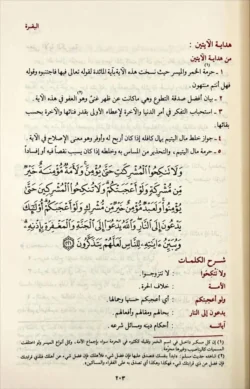 البقرة
هداية الآيتين :
من هداية الآيتين
١ ـ حرمة الخمر والميسر حيث نسخت هذه الآية بآية المائدة لقوله تعالى فيها فاجتنبوه وقوله
فهل أنتم منتهون.
٢ ـ بيان أفضل صدقة التطوع وهي ماكانت عن ظهر غنىً وهو العفو في هذه الآية.
٣ ـ استحباب التفكر في أمر الدنيا والآخرة لإعطاء الأولى بقدر فنائها والآخرة بحسب
بقائها.
٤ ـ جواز خلط مال اليتيم بمال كافله إذا كان أربح له وأوفر وهو معنى الإصلاح في الآية.
٥ ـ حرمة مال اليتيم، والتحذير من المساس به وخلطه إذا كان يسبب نقصاً فيه أو إفساداً
وَلَا تَنكِحُوا۟ ٱلْمُشْرِكَٰتِ حَتَّىٰ يُؤْمِنَّ ۚ وَلَأَمَةٌ مُّؤْمِنَةٌ خَيْرٌ
مِّن مُّشْرِكَةٍ وَلَوْ أَعْجَبَتْكُمْ ۗ وَلَا تُنكِحُوا۟ ٱلْمُشْرِكِينَ حَتَّىٰ
يُؤْمِنُوا۟ ۚ وَلَعَبْدٌ مُّؤْمِنٌ خَيْرٌ مِّن مُّشْرِكٍ وَلَوْ أَعْجَبَكُمْ ۗ أُو۟لَٰٓئِكَ
يَدْعُونَ إِلَى ٱلنَّارِ ۖ وَٱللَّهُ يَدْعُوٓا۟ إِلَى ٱلْجَنَّةِ وَٱلْمَغْفِرَةِ بِإِذْنِهِۦ ۖ
وَيُبَيِّنُ ءَايَٰتِهِۦ لِلنَّاسِ لَعَلَّهُمْ يَتَذَكَّرُونَ
شرح الكلمات
ولا تنكحوا : لا تتزوجوا.
الأمـة : خلاف الحرة.
ولو أعجبتكم : أي أعجبكم حسنها وجمالها.
يدعون إلى النار : بحالهم ومقالهم وأفعالهم.
آياتـه : أحكام دينه ومسائل شرعه.
٢٠٣